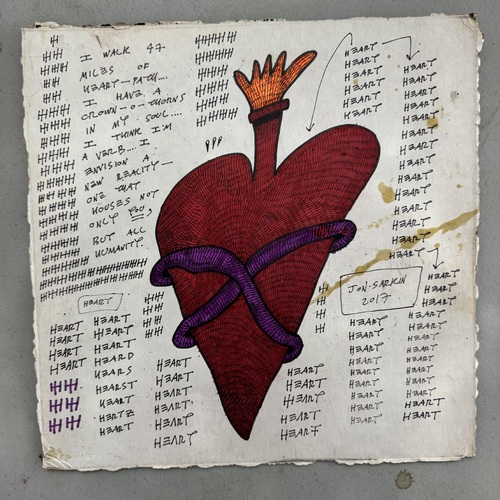 I WALK 47
MILES OF
HEART-PATH....
I HAVE A
CROWN-O-THORNS
IN MY SOUL....
I THINK I'M
A VERB....I
ENVISION A
NEW REALITY—
ONE THAT
HOUSES NOT
ONLY YOU,
BUT ALL
HUMANITY..
HEART
HEART
HEART
HEART
HEART
HEART
HEART
HEART
HEART
HEART
HEART
HEART
HEART
HEART
HEART
HEART
HEART
HEART
HEART
JON SARKIN
2017
HEART
HEART
HEART
HEART
HEART
HEART
HEART
HEART
HEART
HEARD
HEARS
HEARST
HEART
HERTZ
HEART
HEART
HEART
HEART
HEART
HEART
HEART
HEART
HEART
HEART
HEART
HEART
HEART
HEART
HEART
HEART
HEART
HEART
HEART
HEART
HEART
HEART
HEART
HEART
HEART
HEART
HEART
HEART
HEART
HEART
HEART
HEART